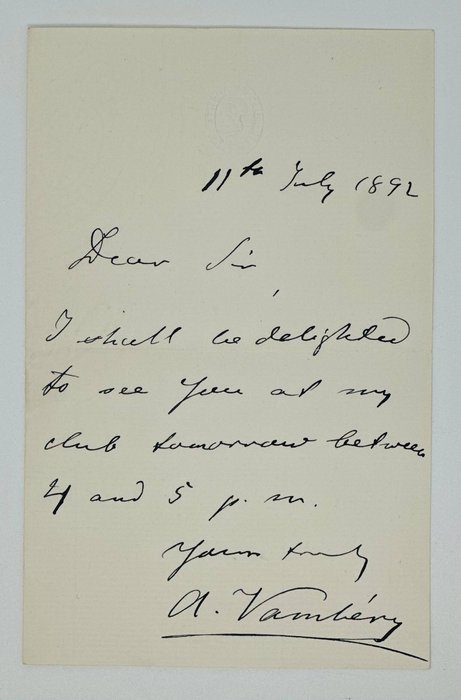 11th July 1892
Dear Sir
I shall be delighted
to see you at my
club tomorrow between
4 and 5 p. m.
Yours truly
A. Vambéry